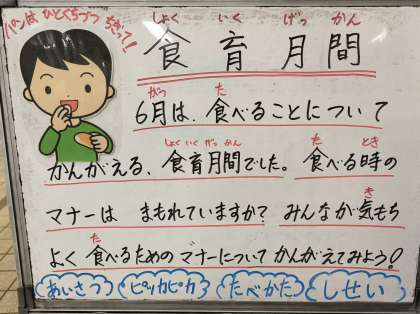 パンは ひとくちづつ ちぎって!
しょく いく げっ かん
食育月間
がつ た
6月は、食べることについて
しょくいくげっかん た とき
かんがえる、食育月間でした。食べる時の
き
マナーは まもれていますか? みんなが気もち
た
よく食べるためのマナーについてかんがえてみよう!
あいさつ ピッカピカ たべかた しせい